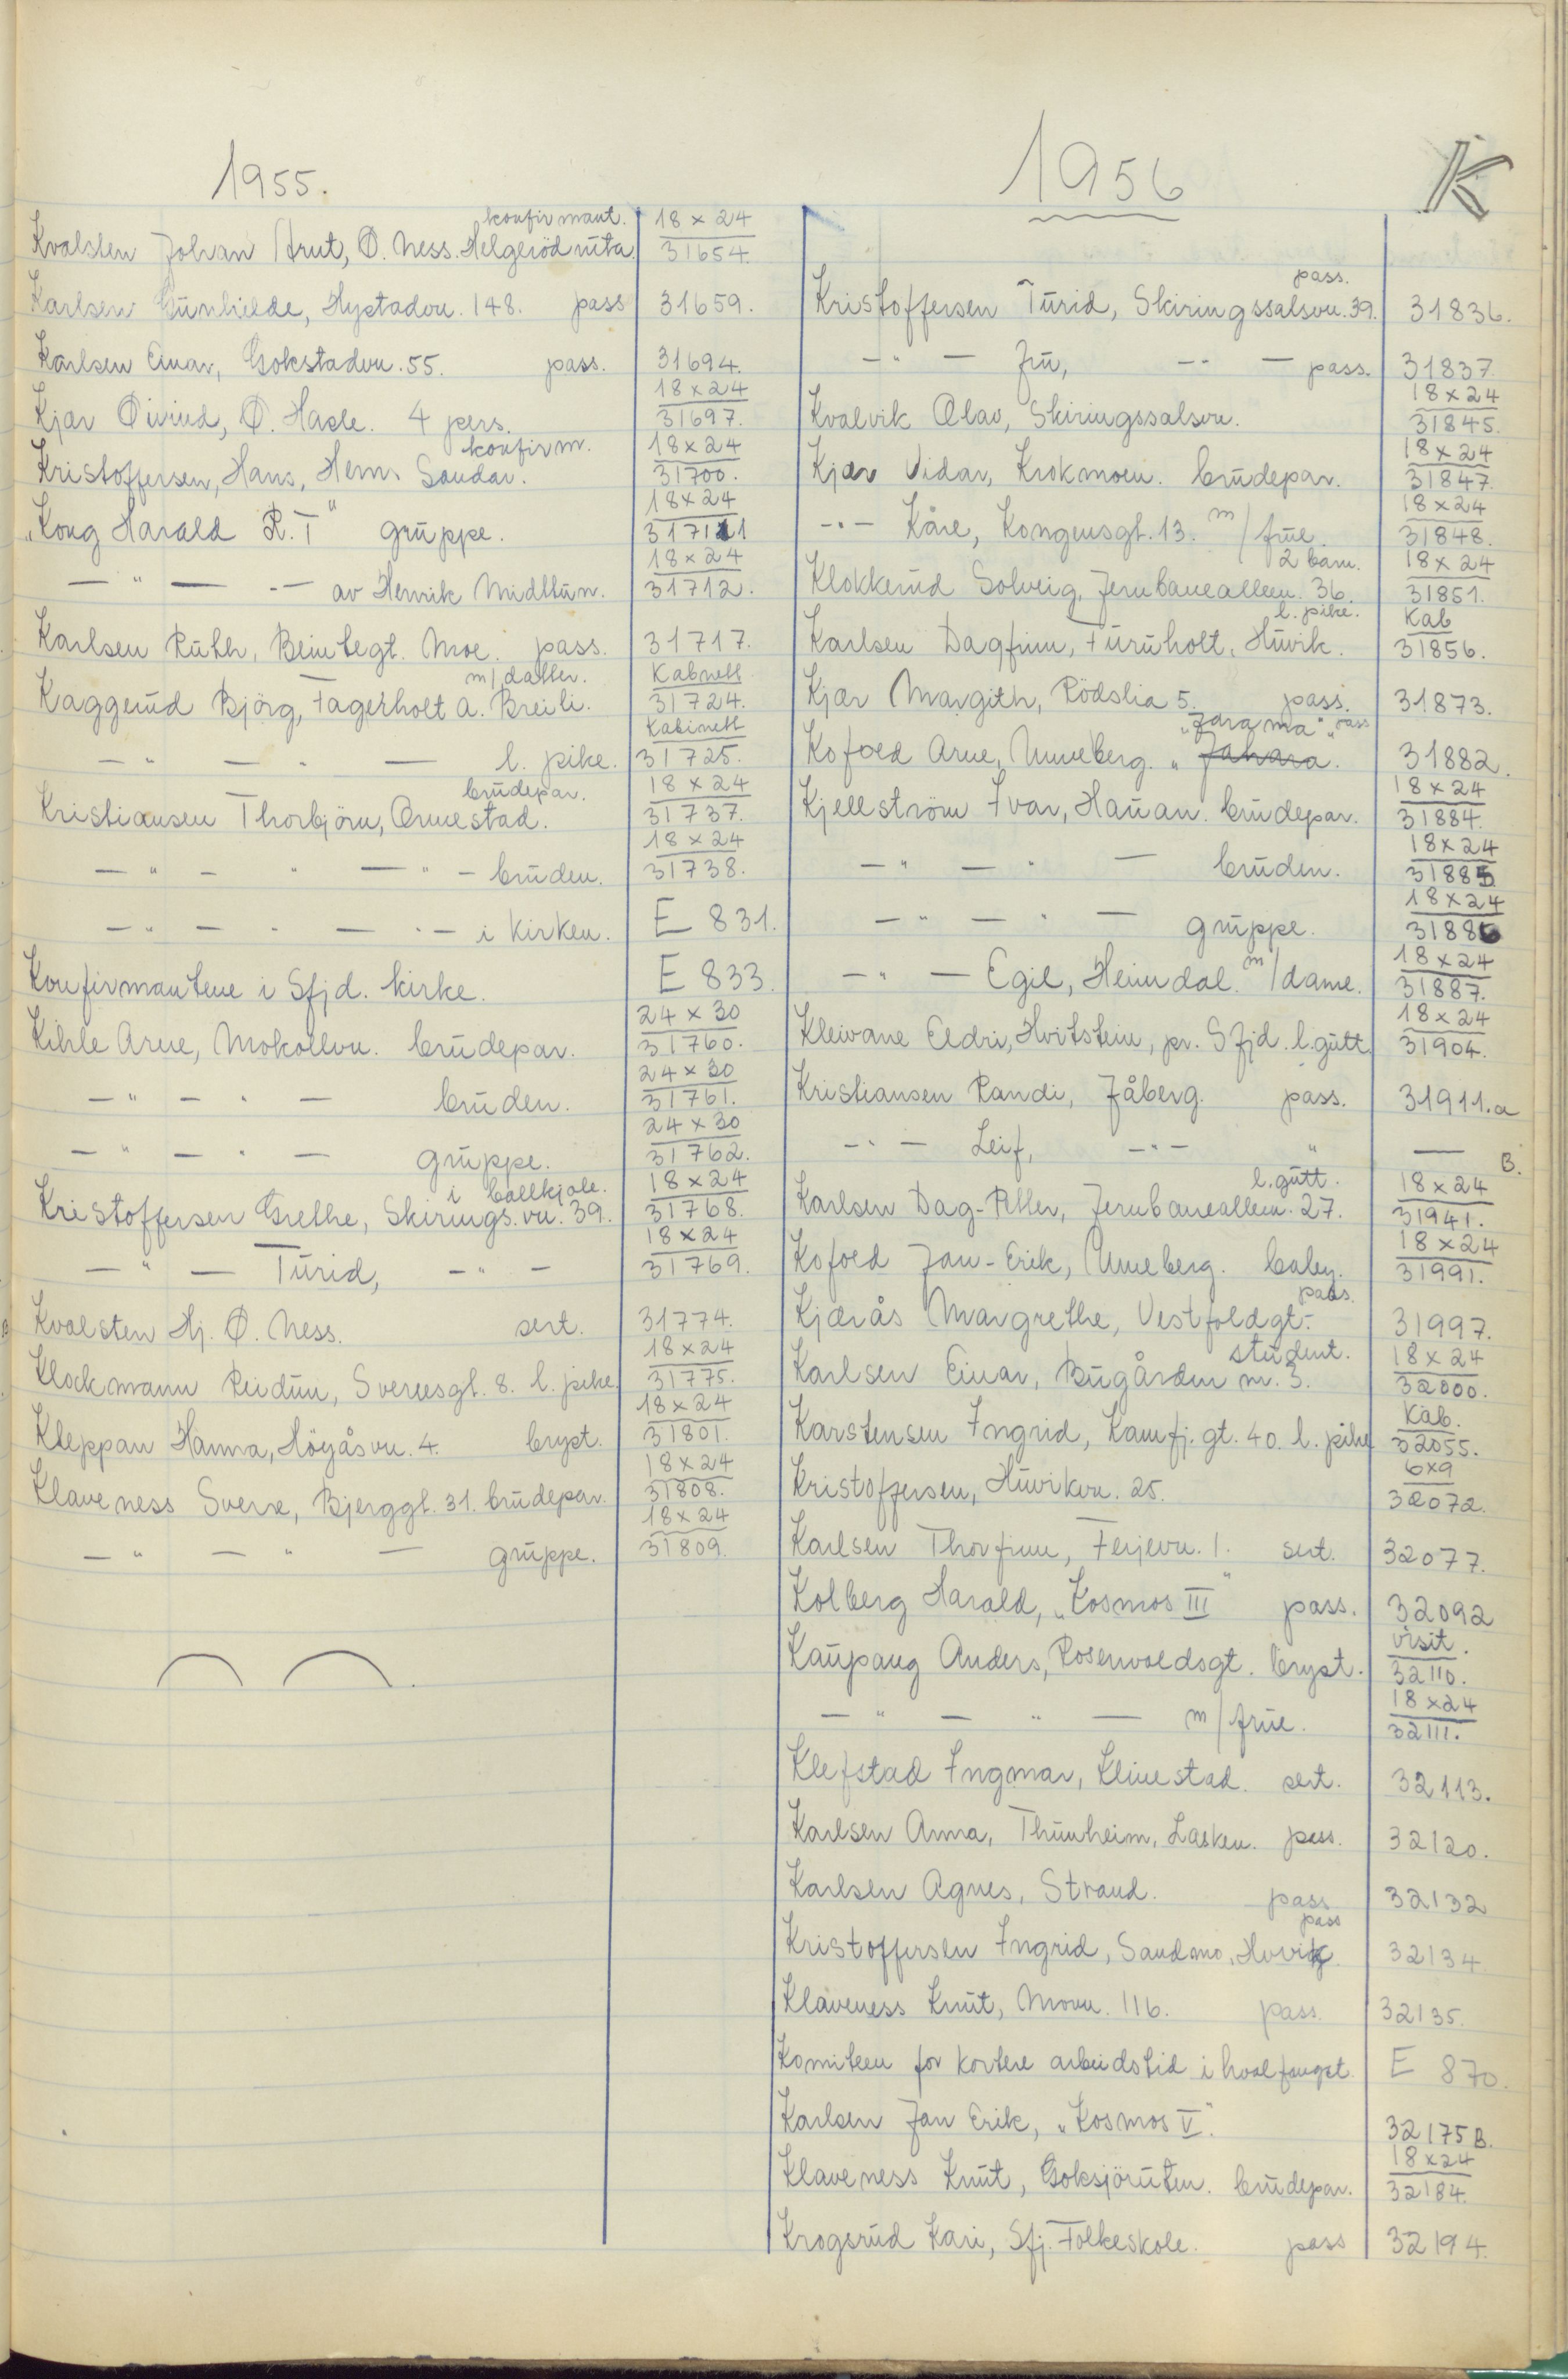 1955.
konfirmant. 18 x 24
Kvalsten Johan Knut, Ø. Ness. Helgerödruta. 31654.
Karlsen Gunhilde, Hystadvn. 148. pass 31659.
Karlsen Einar, Gokstadvn. 55. pass. 31694.
18 x 24
Kjær Øivind, Ø. Hasle. 4 pers. 31697.
konfirm. 18 x 24
Kristoffersen, Hans, Hem. Sandar. 31700.
18 x 24
"Kong Harald R. T" gruppe. 31711
18 x 24
— " — - — av Henrik Midttun. 31712.
Karlsen Ruth, Beintegt. Moe. pass. 31717.
m/datter. Kabnett
Kaggerud Björg, Fagerholt a. Breili. 31724.
Kabinett
— " — " — l. pike. 31725.
brudepar. 18 x 24
Kristiansen Thorbjörn, Ormestad. 31737.
18 x 24
— " — " — " — bruden. 31738.
— " — " — " — i kirken. E 831.
Konfirmantene i Sfjd. kirke. E 833.
24 x 30
Kihle Arne, Mokollvn. brudepar. 31760.
24 x 30
— " — " — bruden. 31761.
24 x 30
— " — " — gruppe. 31762.
i ballkjole. 18 x 24
Kristoffersen Grethe, Skirings.vn. 39. 31768.
18 x 24
— " — Turid, — " — 31769.
Kvalsten Hj. Ø. Ness. sert. 31774.
18 x 24
Klockmann Reidun, Sverresgt. 8. l. pike. 31775.
18 x 24
Kleppan Hanna, Höyåsvn. 4. bryst. 31801.
18 x 24
Klaveness Sverre, Bjerggt. 31. brudepar. 31808.
18 x 24
— " — " — gruppe. 31809.
1956
K
pass.
Kristoffersen Turid, Skiringssalsvn. 39. 31836.
— " — Fru, — " — pass. 31837.
18 x 24
Kvalvik Olav, Skiringssalsvn. 31845.
18 x 24
Kjær Vidar, Krokmoen. brudepar. 31847.
18 x 24
— " — Kåre, Kongensgt. 13. m/frue. 31848.
2 barn. 18 x 24
Klokkerud Solveig, Jernbanealleen. 36. 31851.
l. pike. Kab
Karlsen Dagfinn, Furuholt, Huvik. 31856.
Kjær Margith, Rödslia 5. pass. 31873.
"Jarama" pass
Kofoed Arne, Unneberg. " Jahara. 31882.
18 x 24
Kjellström Ivar, Hauan. brudepar. 31884.
18 x 24
— " — " — bruden. 31885
18 x 24
— " — " — gruppe. 31886
18 x 24
— " — Egil, Heimdal. m/dame. 31887.
18 x 24
Kleivane Eldri, Hvitstein, pr. Sfjd. l. gutt. 31904.
Kristiansen Randi, Jåberg. pass. 31911.a
— " — Leif, — " — " — B.
l. gutt. 18 x 24
Karlsen Dag-Petter, Jernbanealleen. 27. 31941.
18 x 24
Kofoed Jan-Erik, Unneberg. baby. 31991.
pass.
Kjærås Margrethe, Vestfoldgt. 31997.
student. 18 x 24
Karlsen Einar, Bugården nr. 3. 32000.
Kab.
Karstensen Ingrid, Kamfj.gt. 40. l. pike 32055.
6x9
Kristoffersen, Huvikvn. 25. 32072.
Karlsen Thorfinn, Ferjevn. 1. sert. 32077.
Kolberg Harald, "Kosmos III" pass. 32092
visit.
Kaupang Anders, Rosenvoldsgt. bryst. 32110.
18 x 24
— " — " — m/frue. 32111.
Klefstad Ingmar, Klinestad. sert. 32113.
Karlsen Anna, Thunheim, Lasken. pass. 32120.
Karlsen Agnes, Strand. pass 32132
pass
Kristoffersen Ingrid, Sandmo, Huvik. 32134
Klaveness Knut, Movn. 116. pass. 32135.
Komiteen for kortere arbeidstid i hvalfanget. E 870.
Karlsen Jan Erik, "Kosmos V". 32175 B.
18 x 24
Klaveness Knut, Goksjöruten. brudepar. 32184.
Krogsrud Kari, Sfj. Folkeskole. pass 32194.